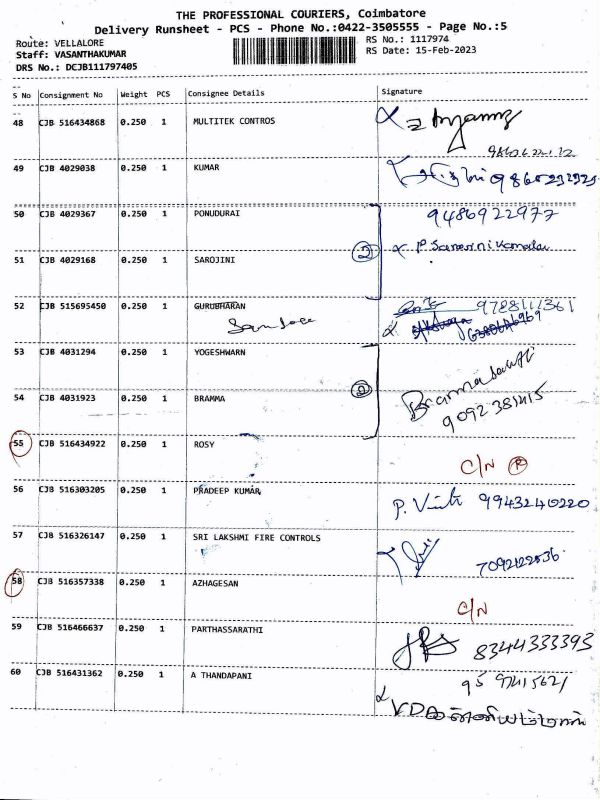 THE PROFESSIONAL COURIERS, Coimbatore
Delivery Runsheet - PCS - Phone No.:0422-3505555 - Page No.:5
Route: VELLALORE
RS No.: 1117974
Staff: VASANTHAKUMAR
RS Date: 15-Feb-2023
DRS No.: DCJB111797405
S No Consignment No Weight PCS Consignee Details Signature
48 CJB 516434868 0.250 1 MULTITEK CONTROS
49 CJB 4029038 0.250 1 KUMAR
50 CJB 4029367 0.250 1 PONUDURAI 9486922977
51 CJB 4029168 0.250 1 SAROJINI 2 P
52 CJB 515695450 0.250 1 GURUBHARAN 9788111361
53 CJB 4031294 0.250 1 YOGESHWARN
54 CJB 4031923 0.250 1 BRAMMA 2
55 CJB 516434922 0.250 1 ROSY C/N R
56 CJB 516303205 0.250 1 PRADEEP KUMAR, P. 9943240220
57 CJB 516326147 0.250 1 SRI LAKSHMI FIRE CONTROLS
58 CJB 516357338 0.250 1 AZHAGESAN C/N
59 CJB 516466637 0.250 1 PARTHASSARATHI 8344333393
60 CJB 516431362 0.250 1 A THANDAPANI